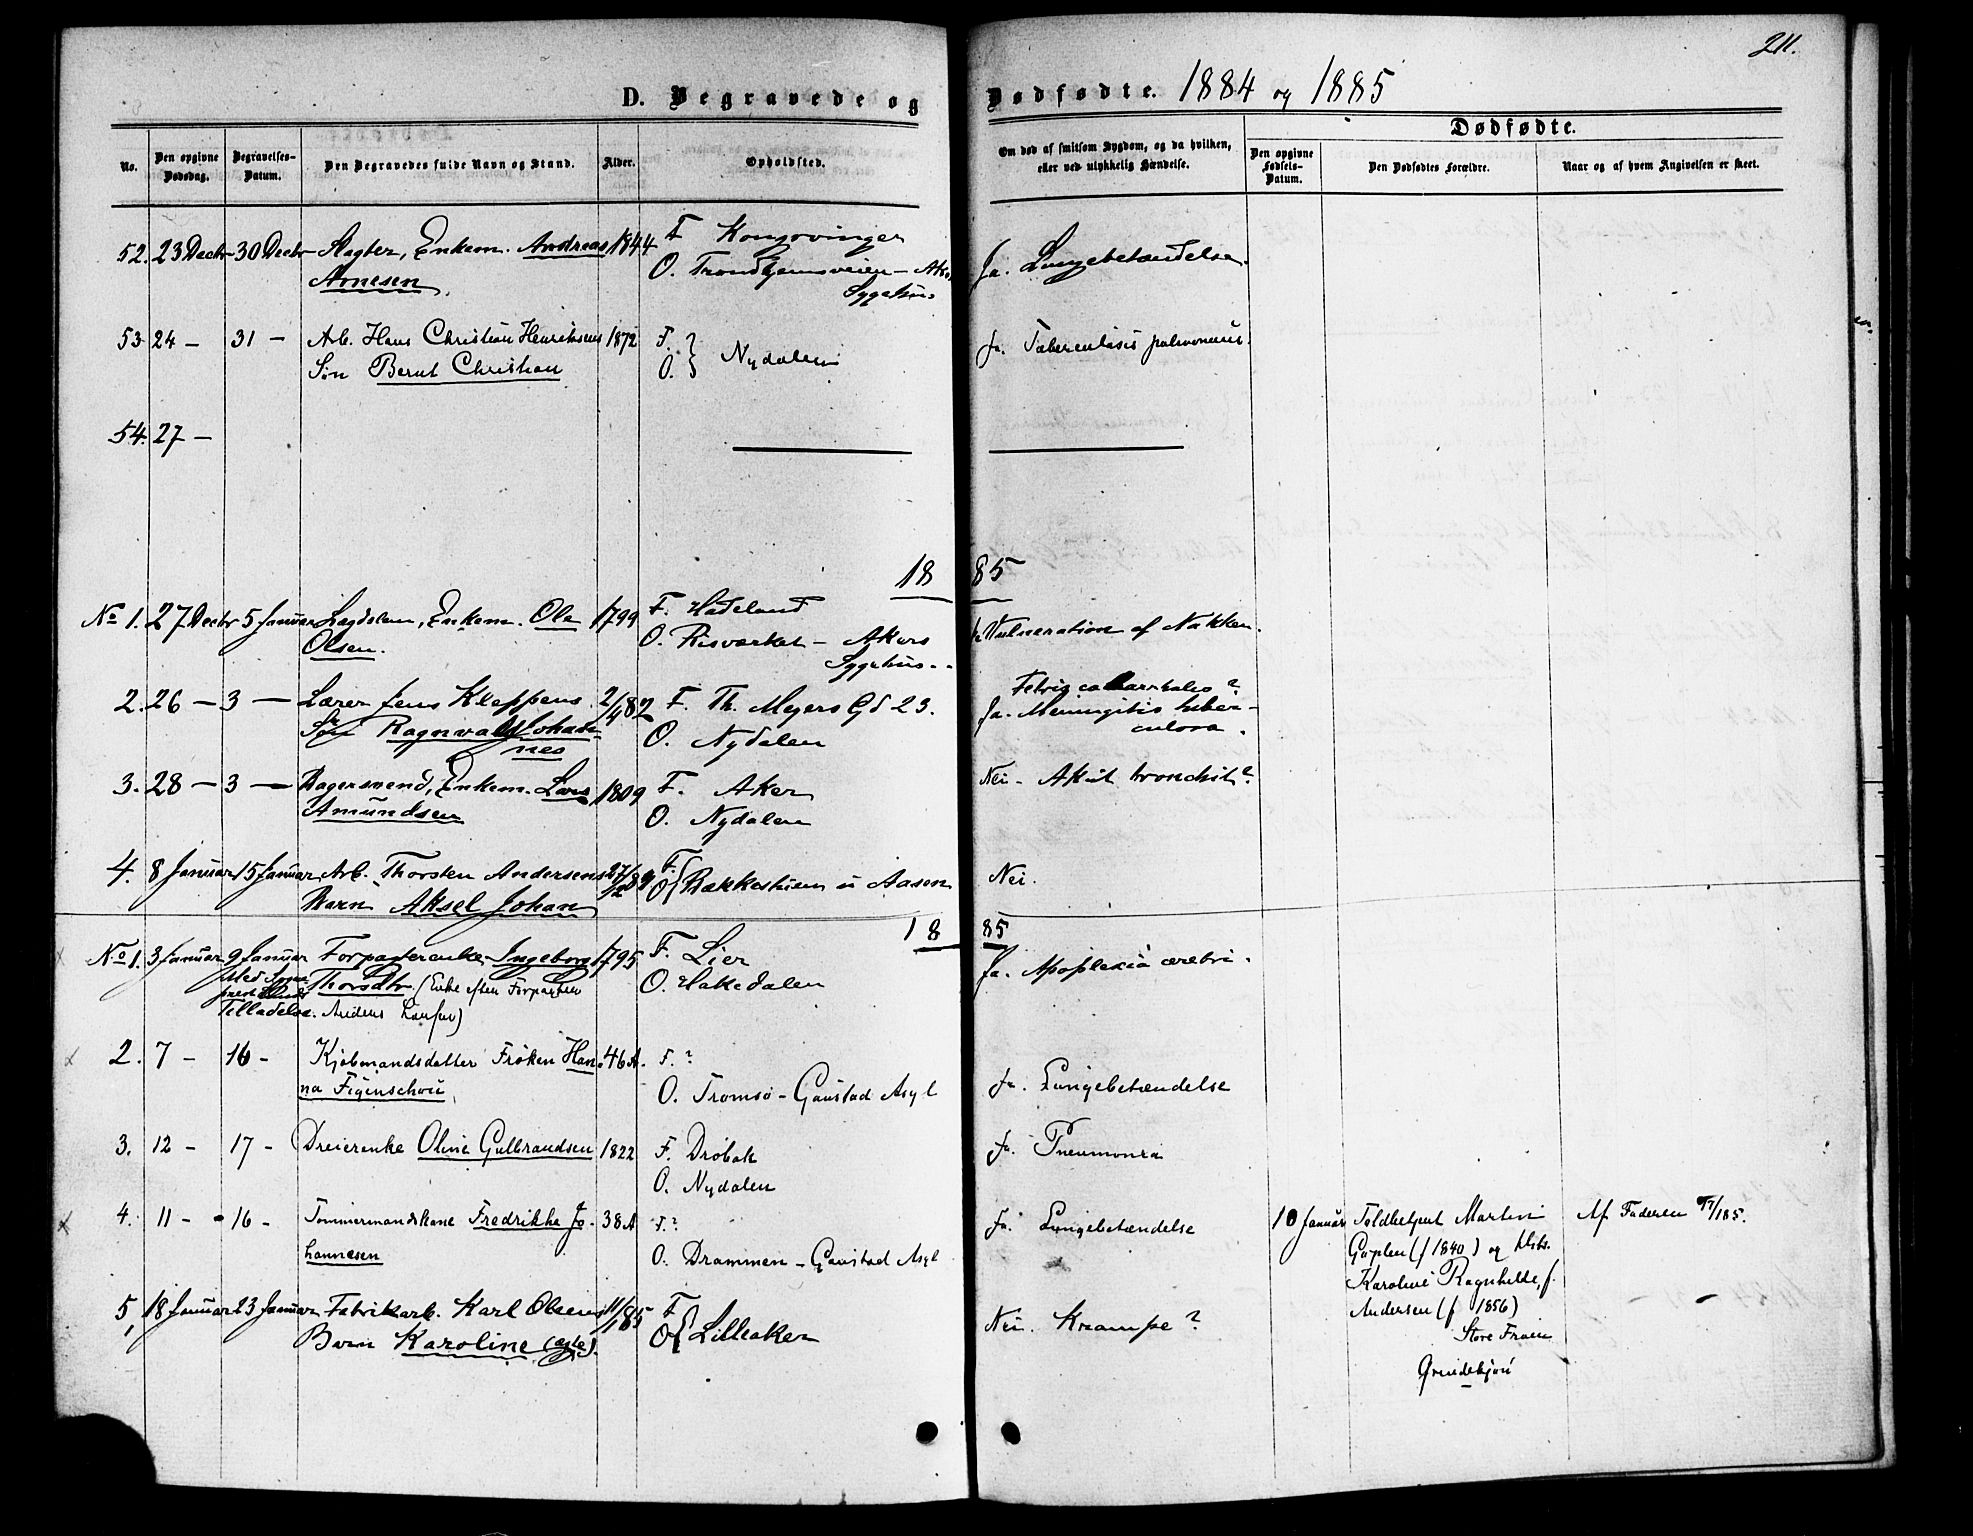 211.
D. Begravede og Dødfødte. 1884 og 1885
Dødfødte.
No. Den opgivne Dødsdag. Begravelses-Datum. Den Begravedes fulde Navn og Stand. Alder. Opholdsted. Om død af smitsom Sygdom, og da hvilken, eller ved ulykkelig Hændelse. Den opgivne Fødsels-Datum. Den Dødfødtes Forældre. Naar og af hvem Angivelsen er skeet.
52. 23 Decbr 30 Decbr Slagter, Enkem. Andreas 1844 F. Kongsvinger
Arnesen. O. Trondhjemsveien - Akers Sygehus. Ja. Lungebetændelse.
53 24 - 31 - Arb. Hans Christian Henriksens 1872 F. } Nydalen Ja. Tuberculosis pulmonum.
Søn Bernt Christian O. }
54. 27 -
1885
No 1. 27 Decbr 5 Januar Lægdslem, Enkem. Ole 1799 F. Hadeland
Olsen. O. Risværket - Akers Sygehus. Vulneration af Nakken.
2. 26 - 3 - Lærer Jens Kleppens 2/4 82 F. Th. Meyers Gd 23. Febris catarrhalis?
Søn Ragnvald Johannes O. Nydalen Ja. Meningitis tuberculosa.
3. 28 - 3 - Bagersvend, Enkem. Lars 1809 F. Aker Nei - Akut bronchit?
Amundsen O. Nydalen
4. 8 Januar 15 Januar Arb. Thorsten Andersens 27/12 84 F. O. } Bakkestuen u Aasen Nei.
Barn Aksel Johan
1885
No 1. 3 Januar 9 Januar Forpagterenke Ingeborg 1795 F. Lier Ja. Apoplexia cerebri.
Thorsdtr (Enke efter Forpagter O. Hakedalen
Tilladelse. Anders Larsen)
2. 7 - 16 - Kjøbmandsdatter Frøken Han- 46 A. F. ?
na Figenschou O. Tromsø - Gaustad Asyl Ja. Lungebetændelse
3. 12 - 17 - Dreierenke Oline Gulbrandsen 1822 F. Drøbak Ja. Pneumonia
O. Nydalen
4. 11 - 16 - Tømmermandskone Fredrikke Jo- 38 A F. ? Ja. Lungebetændelse 10 Januar Toldbetjent Martin Af Faderen
hannesen O. Drammen - Gaustad Asyl (f 1840) og Hst.
Karoline Ragnhilde, f.
Andersen (f 1856)
Store Frøen
5, 18 Januar 23 Januar Fabrikarb. Karl Olsens 11/1 85 F. O. } Lilleaker Nei. Krampe?
Barn Karoline (ægte).